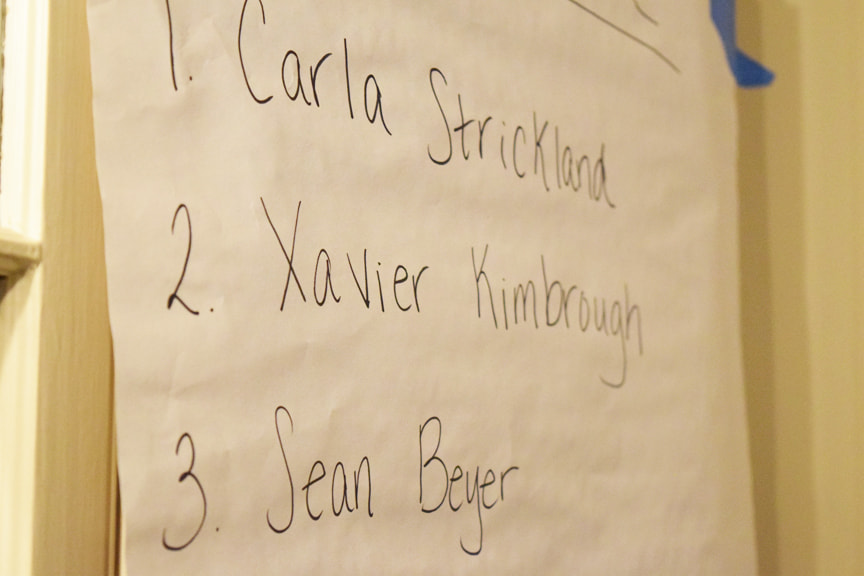 1. Carla Strickland
2. Xavier Kimbrough
3. Sean Beyer